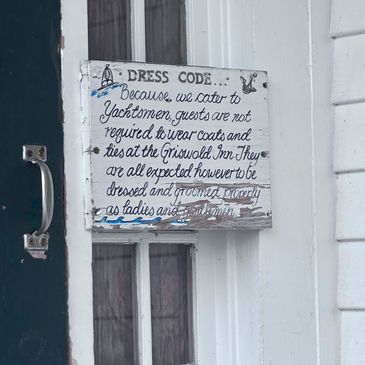 DRESS CODE...
Because, we cater to
Yachtsmen, guests are not
required to wear coats and
ties at the Griswold Inn They
are all expected however to be
dressed and groomed properly
as ladies and gentlemen.